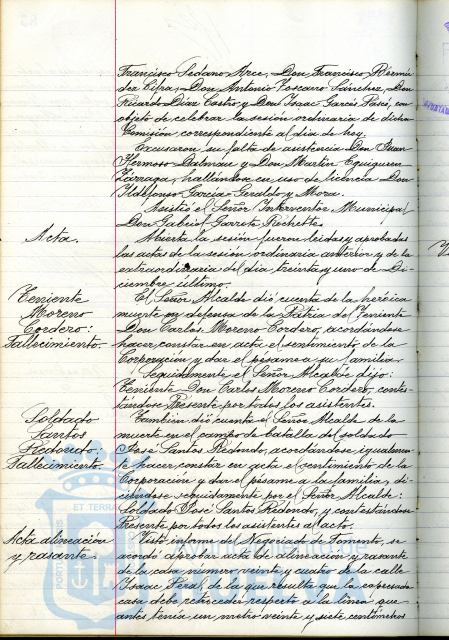 Francisco Sedano Arce, Don Francisco Bermú
dez Cifra, Don Antonio Toscano Sánchez, Don
Ricardo Díaz Castro y Don Isaac García Pavé, con
objeto de celebrar la sesión ordinaria de dicha
Comisión correspondiente al día de hoy.
Excusaron su falta de asistencia Don Juan
Hermoso Dalmau y Don Martín Eguiguren
Zárraga, hallándose en uso de licencia Don
Ildefonso García-Giraldo y Mora.
Asistió el Señor Interventor Municipal
Don Gabriel Garrete Rechette.
Acta.
Abierta la sesión fueron leídas y aprobadas
las actas de la sesión ordinaria anterior y de la
extraordinaria del día treinta y uno de Di-
ciembre último.
Teniente
Moreno
Cordero:
Fallecimiento.
El Señor Alcalde dió cuenta de la heróica
muerte en defensa de la Patria del Teniente
Don Carlos Moreno Cordero, acordándose
hacer constar en acta el sentimiento de la
Corporación y dar el pésame a su familia.
Seguidamente el Señor Alcalde dijo:
Teniente Don Carlos Moreno Cordero, contes-
tándose Presente por todos los asistentes.
Soldado
Santos
Redondo.
Fallecimiento.
También dió cuenta el Señor Alcalde de la
muerte en el campo de batalla del soldado
José Santos Redondo, acordándose igualmen-
te hacer constar en acta el sentimiento de la
Corporación y dar el pésame a la familia, di-
ciéndose seguidamente por el Señor Alcalde:
Soldado José Santos Redondo, y contestándose
Presente por todos los asistentes al acto.
Acta alineación
y rasante.
Visto informe del Negociado de Fomento, se
acordó aprobar acta de alineación y rasante
de la casa número veinte y cuatro de la calle
Isaac Peral de la que resulta que la expresada
casa debe retroceder respecto a la línea que
antes tenía un metro veinte y siete centímetros
ET TERRAE